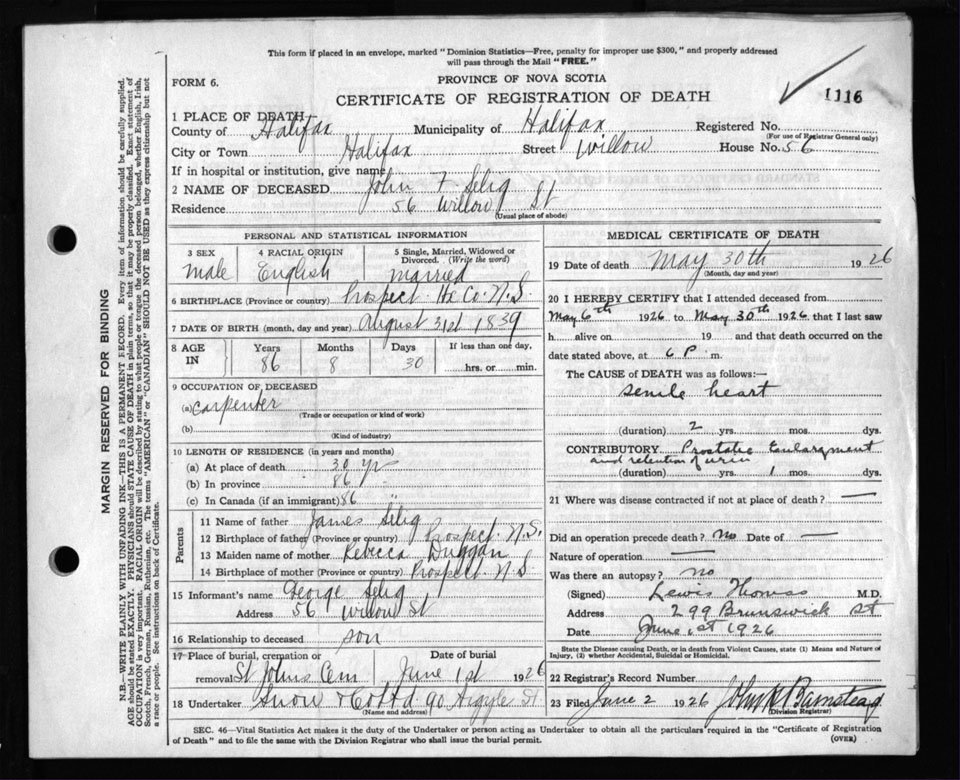 This form if placed in an envelope, marked "Dominion Statistics—Free, penalty for improper use $300," and properly addressed
will pass through the Mail "FREE."
FORM 6.
PROVINCE OF NOVA SCOTIA
CERTIFICATE OF REGISTRATION OF DEATH
1116
1 PLACE OF DEATH
County of Halifax Municipality of Halifax Registered No.
(For use of Registrar General only)
City or Town Halifax Street Willow House No. 56
If in hospital or institution, give name
2 NAME OF DECEASED John F Selig
Residence 56 Willow St
(Usual place of abode)
PERSONAL AND STATISTICAL INFORMATION
3 SEX 4 RACIAL ORIGIN 5 Single, Married, Widowed or Divorced. (Write the word)
Male English Married
6 BIRTHPLACE (Province or country) Prospect Hx Co. N.S
7 DATE OF BIRTH (month, day and year) August 31st 1839
8 AGE IN Years Months Days If less than one day,
86 8 30 hrs. or min.
9 OCCUPATION OF DECEASED
(a) Carpenter
(Trade or occupation or kind of work)
(b)
(Kind of industry)
10 LENGTH OF RESIDENCE (in years and months)
(a) At place of death 30 yr
(b) In province 86 "
(c) In Canada (if an immigrant) 86 "
Parents
11 Name of father James Selig
12 Birthplace of father (Province or country) Prospect. N.S.
13 Maiden name of mother Rebecca Duggan
14 Birthplace of mother (Province or country) Prospect N S
15 Informant's name George Selig
Address 56 Willow St
16 Relationship to deceased son
17 Place of burial, cremation or removal St Johns Cem Date of burial June 1st 1926
18 Undertaker Snow & Co Ltd 90 Argyle St
(Name and address)
MEDICAL CERTIFICATE OF DEATH
19 Date of death May 30th 1926
(Month, day and year)
20 I HEREBY CERTIFY that I attended deceased from
May 6th 1926 to May 30th 1926 that I last saw
h alive on 19 and that death occurred on the
date stated above, at 6 P. m.
The CAUSE OF DEATH was as follows:—
senile heart
(duration) 2 yrs. mos. dys.
CONTRIBUTORY Prostatic Enlargment
and retention of urin
(duration) yrs. 1 mos. dys.
21 Where was disease contracted if not at place of death? —
Did an operation precede death? no Date of —
Nature of operation —
Was there an autopsy? no
(Signed) Lewis Thomas M.D.
Address 299 Brunswick St
Date June 1st 1926
State the Disease causing Death, or in death from Violent Causes, state (1) Means and Nature of
Injury, (2) whether Accidental, Suicidal or Homicidal.
22 Registrar's Record Number
23 Filed June 2 1926 John H Barnstead
(Division Registrar)
SEC. 46—Vital Statistics Act makes it the duty of the Undertaker or person acting as Undertaker to obtain all the particulars required in the "Certificate of Registration
of Death" and to file the same with the Division Registrar who shall issue the burial permit.
(OVER)
MARGIN RESERVED FOR BINDING
N.B.—WRITE PLAINLY WITH UNFADING INK—THIS IS A PERMANENT RECORD. Every item of information should be carefully supplied.
AGE should be stated EXACTLY. PHYSICIANS should STATE CAUSE OF DEATH in plain terms, so that it may be properly classified. Exact statement of
OCCUPATION is very important. RACIAL ORIGIN will be described by stating to what people or tongue the deceased person belonged, whether English, Irish,
Scotch, French, German, Russian, Ruthenian, etc. The terms "AMERICAN" or "CANADIAN" SHOULD NOT BE USED as they express citizenship but not
a race or people. See instructions on back of Certificate.